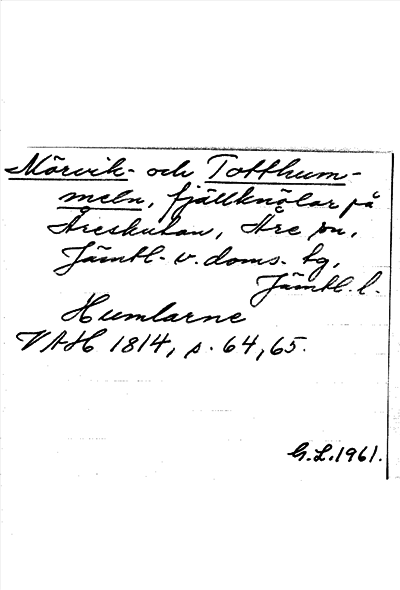 Mörvik- och Totthum-
meln, fjällknölar på
Åreskutan, Åre sn,
Jämtl. v. doms. tg,
Jämtl. l.
Humlarne
VAH 1814, s. 64, 65.
G.L. 1961.